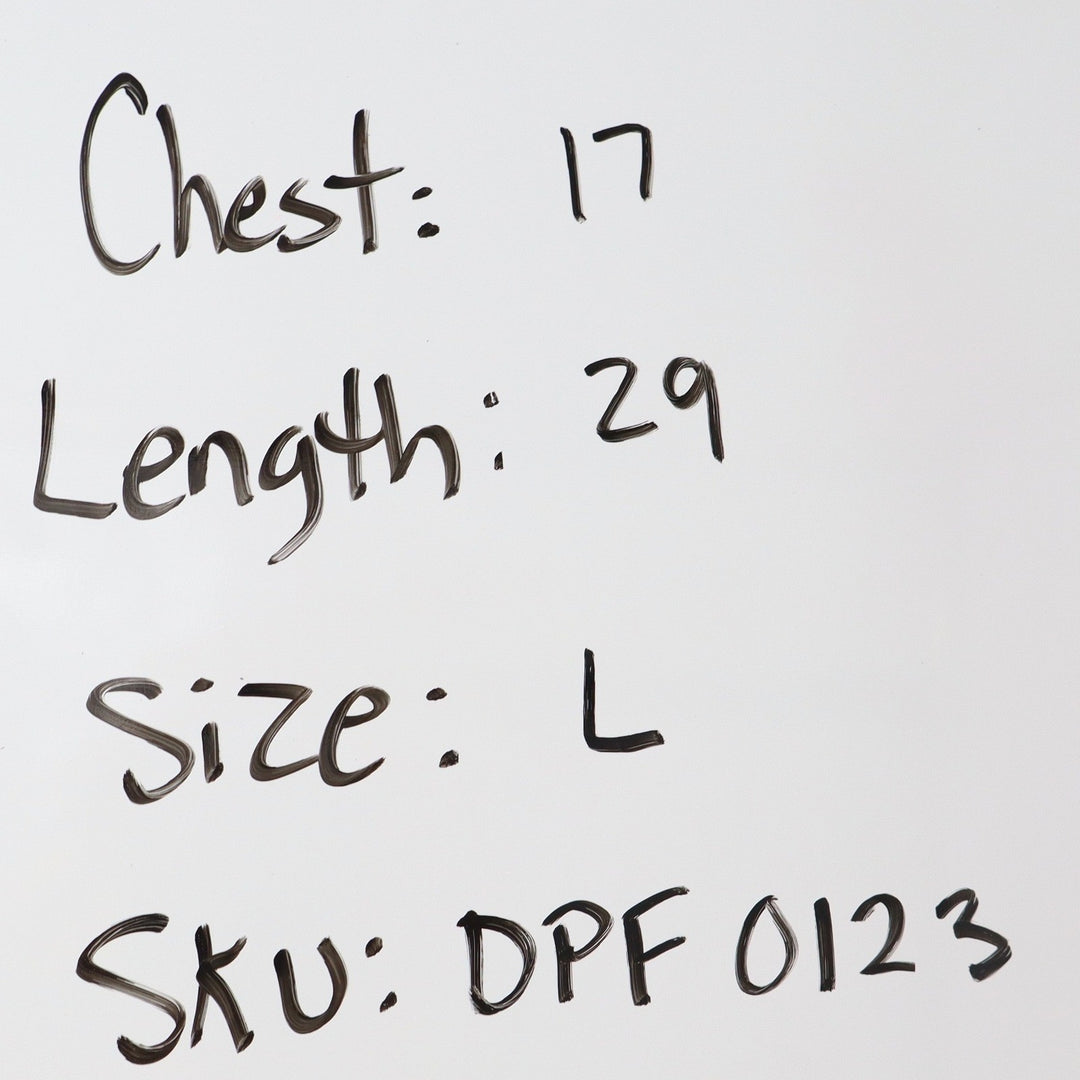 Chest: 17
Length: 29
Size: L
Sku: DPF 0123